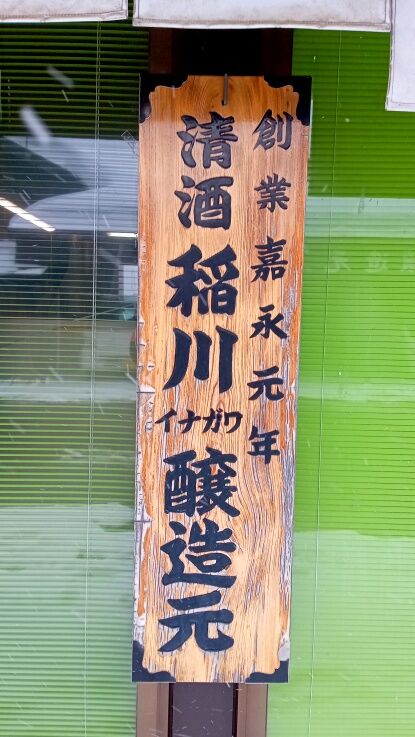 創業嘉永元年
清酒稲川
イナガワ
醸造元